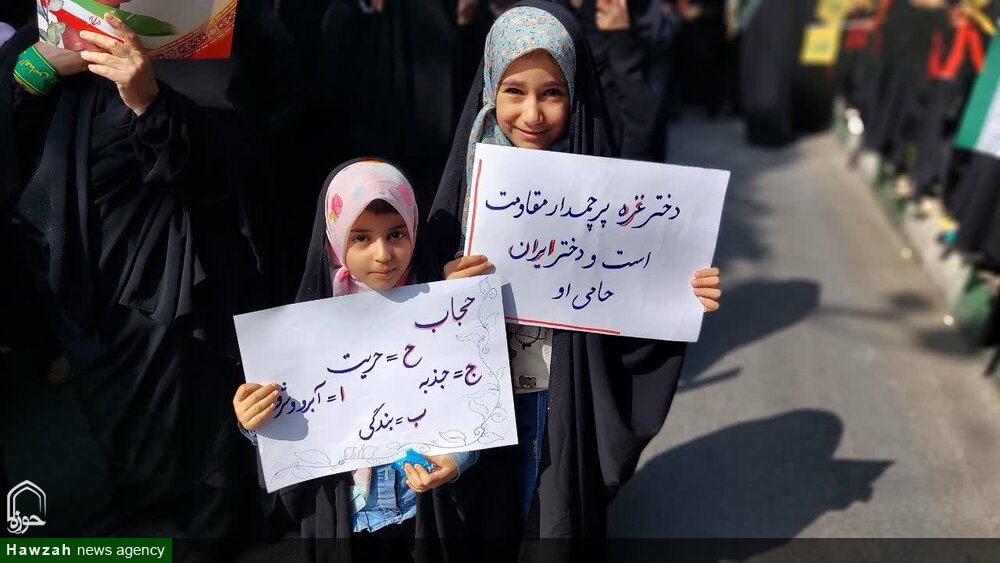 دختر غزه پرچمدار مقاومت
است و دختر ایران
حامی او
حجاب
ح = حریت
ج = جذبه
ا = آبرو و
ب = بندگی
حوزه
Hawzah news agency